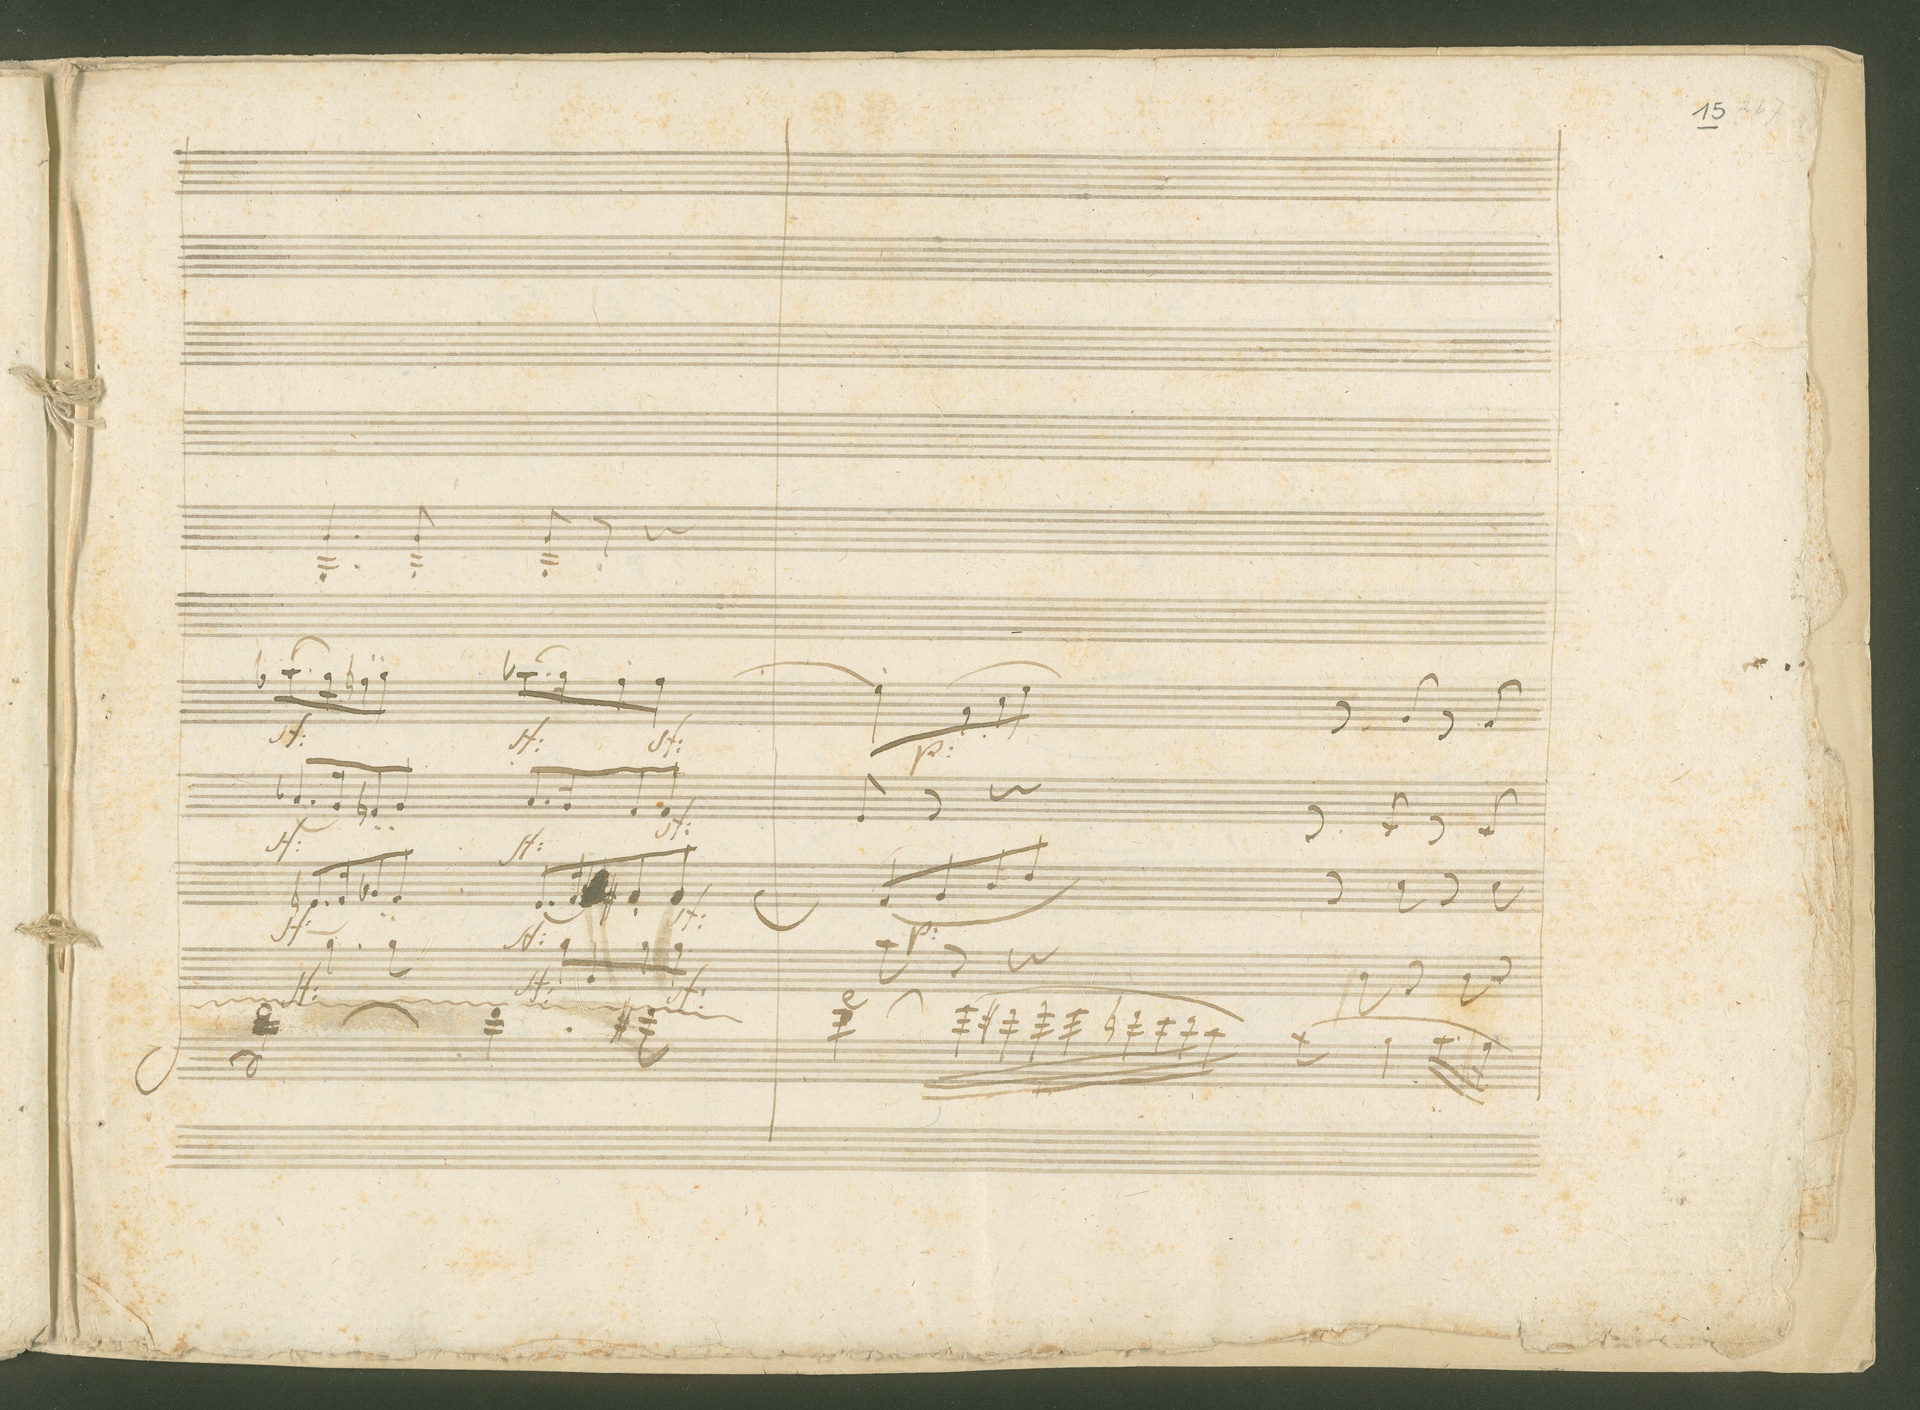 15
sf: sf: sf:
p:
sf: sf: sf:
sf: sf: sf:
p:
sf: sf: sf: